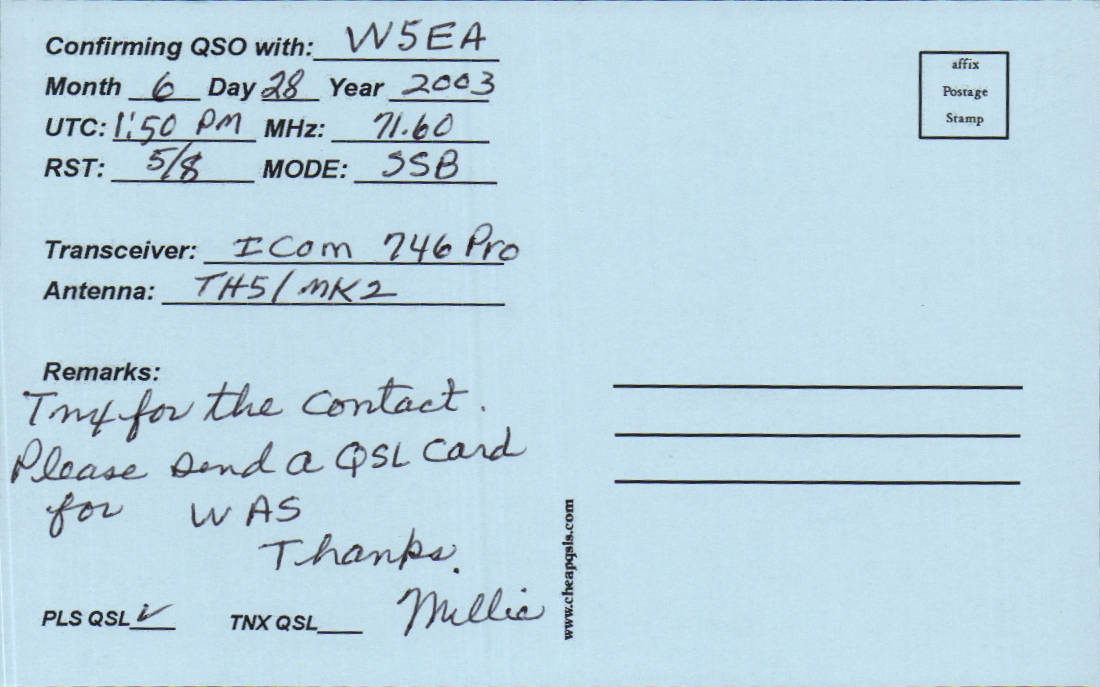 Confirming QSO with: W5EA
Month 6 Day 28 Year 2003
UTC: 1:50 PM MHz: 71.60
RST: 5/8 MODE: SSB
Transceiver: ICom 746 Pro
Antenna: TH5/MK2
Remarks:
Tnx for the Contact.
Please send a QSL Card
for WAS
Thanks.
PLS QSL ✓ TNX QSL___ Millie
www.cheapqsls.com
affix
Postage
Stamp